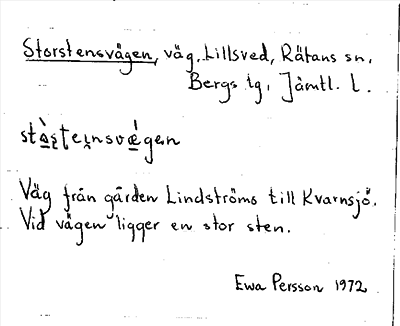 Storstensvägen, väg, Lillsved, Rätans sn,
Bergs tg, Jämtl. l.
stò̱s̱teṉsvǽ̱gen
Väg från gården Lindströms till Kvarnsjö.
Vid vägen ligger en stor sten.
Ewa Persson 1972